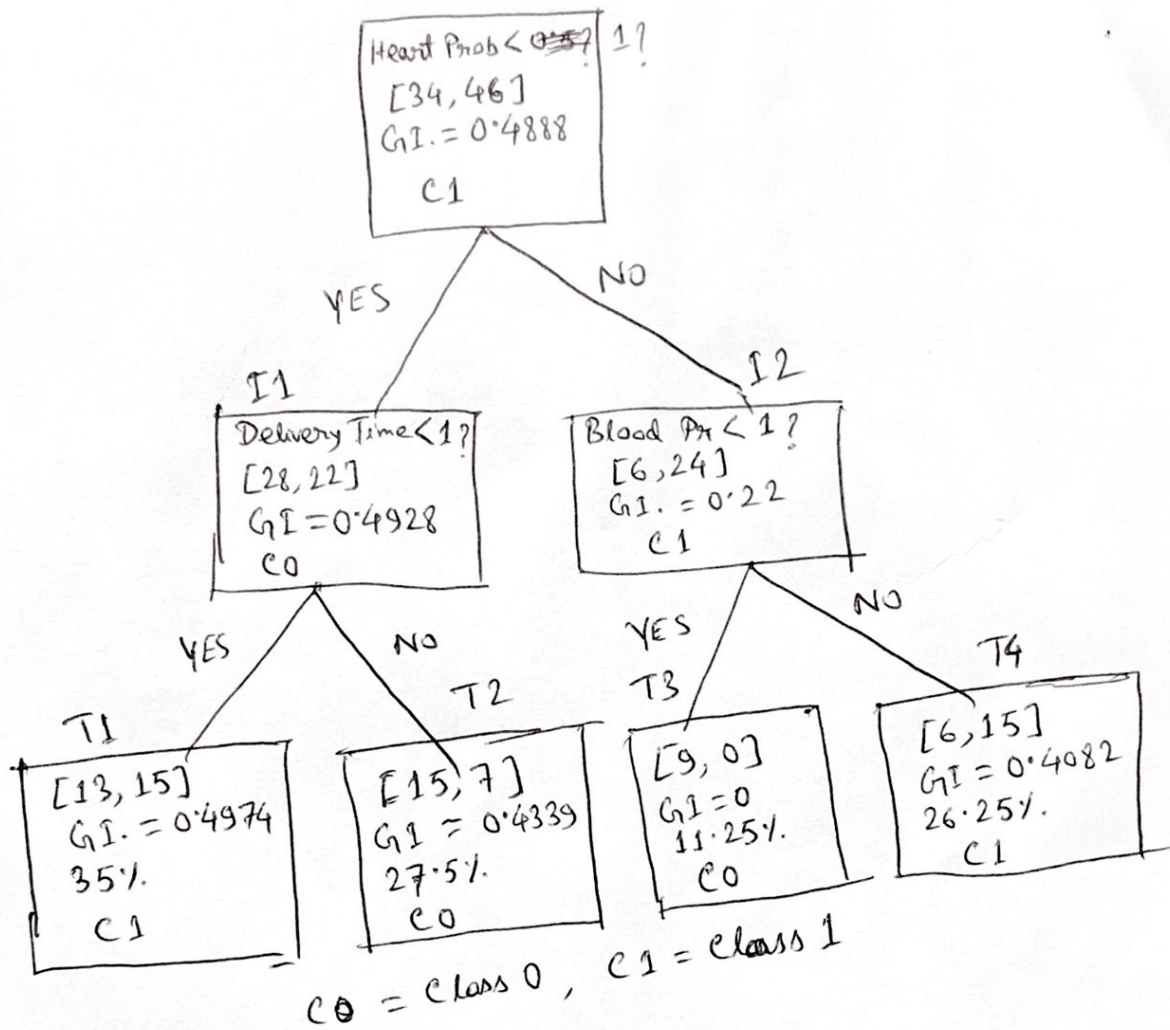 Heart Prob < 1?
[34, 46]
GI. = 0.4888
C1
YES
NO
I1
I2
Delivery Time < 1?
[28, 22]
GI = 0.4928
C0
Blood Pr < 1?
[6, 24]
GI. = 0.22
C1
YES
NO
YES
NO
T1
T2
T3
T4
[13, 15]
GI. = 0.4974
35%.
C1
[15, 7]
GI = 0.4339
27.5%.
C0
[9, 0]
GI = 0
11.25%.
C0
[6, 15]
GI = 0.4082
26.25%.
C1
C0 = Class 0, C1 = Class 1